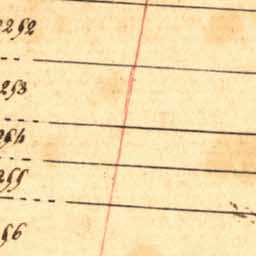 2252
253
254
255
56